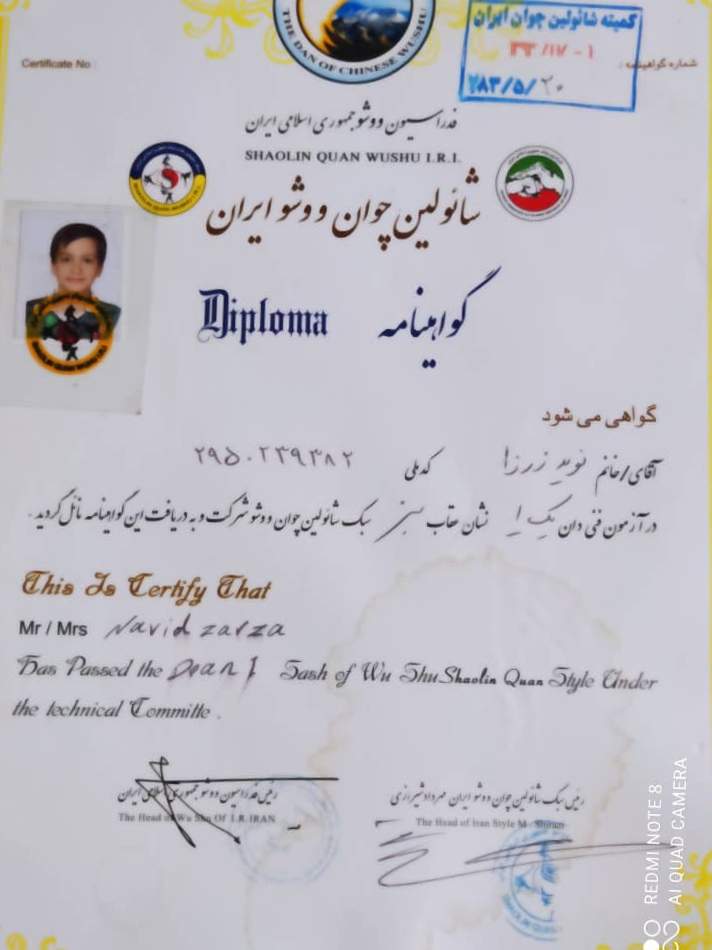 THE DAN OF CHINESE WUSHU
کمیته شائولین چوان ایران
۳۳/۱۷-۱
۲۸۳/۵/۲۰
Certificate No :
شماره گواهینامه :
فدراسیون ووشو جمهوری اسلامی ایران
SHAOLIN QUAN WUSHU I.R.I.
شائولین چوان ووشو ایران
Diploma
گواهینامه
گواهی می شود
آقای/خانم نوید زرزا کد ملی ۲۹۵۰۲۳۹۳۸۲
در آزمون فنی دان یک ۱ نشان عقاب سبز سبک شائولین چوان ووشو شرکت و به دریافت این گواهینامه نائل گردید.
This Is Certify That
Mr / Mrs Navid zarza
Has Passed the Doan 1 Sash of Wu Shu Shaolin Quan Style Under
the technical Committe .
رئیس فدراسیون ووشو جمهوری اسلامی ایران
The Head of Wu Shu Of I.R.IRAN
رئیس سبک شائولین چوان ووشو ایران مهرداد شیرازی
The Head of Iran Style M. Shirazi
REDMI NOTE 8
AI QUAD CAMERA